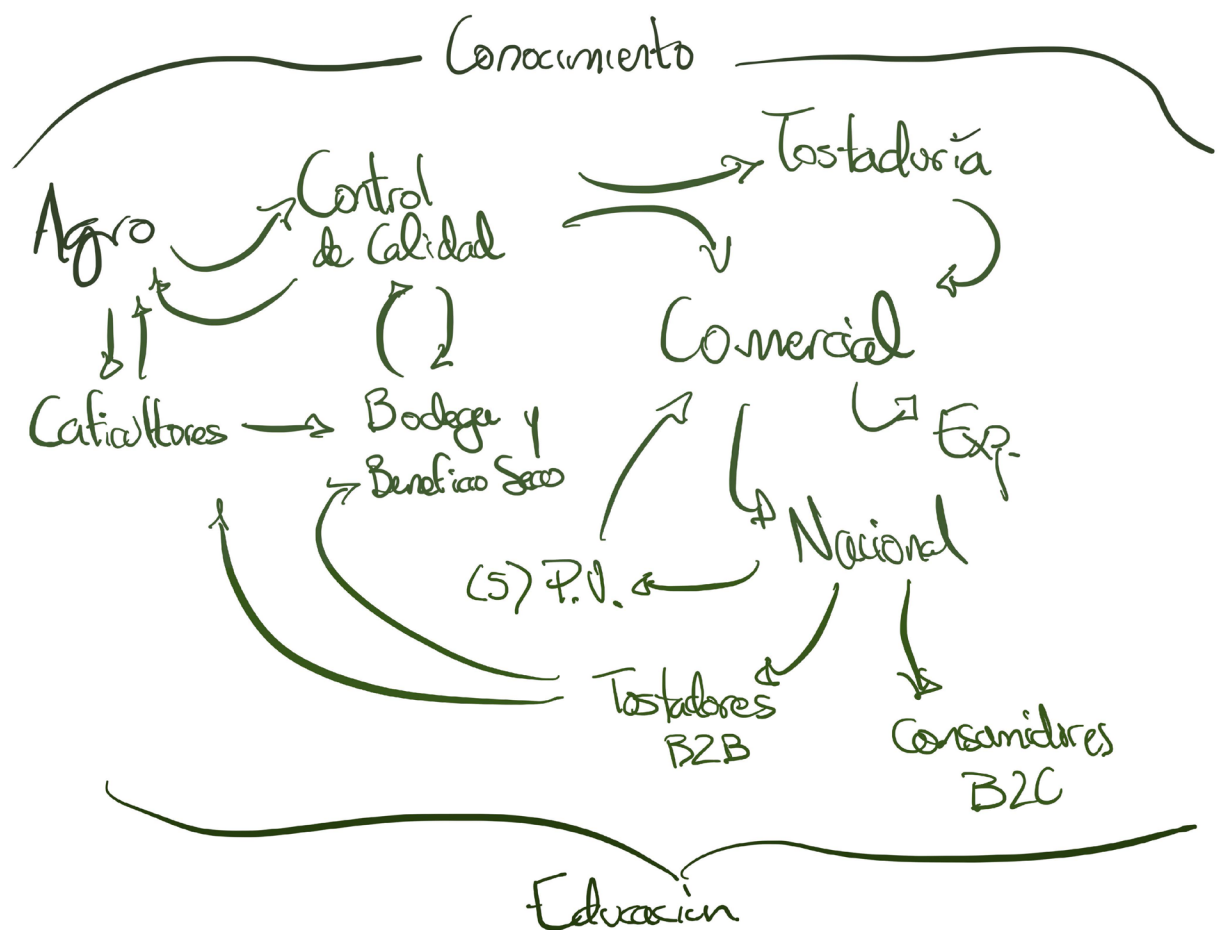 Conocimiento
Tostaduría
Control
de Calidad
Agro
Comercial
Caficultores
Bodega y
Beneficio Seco
Exp.
Nacional
(5) P.V.
Tostadores
B2B
Consumidores
B2C
Educación